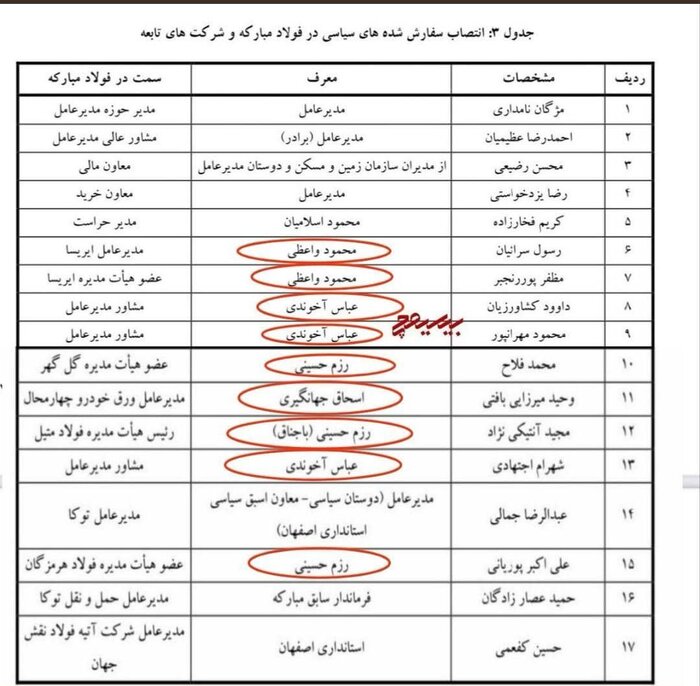 جدول ۳: انتصاب سفارش شده های سیاسی در فولاد مبارکه و شرکت های تابعه
ردیف مشخصات معرف سمت در فولاد مبارکه
۱ مژگان نامداری مدیرعامل مدیر حوزه مدیرعامل
۲ احمدرضا عظیمیان مدیرعامل (برادر) مشاور عالی مدیرعامل
۳ محسن رضیعی از مدیران سازمان زمین و مسکن و دوستان مدیرعامل معاون مالی
۴ رضا یزدخواستی مدیرعامل معاون خرید
۵ کریم فخارزاده محمود اسلامیان مدیر حراست
۶ رسول سرائیان محمود واعظی مدیرعامل ایریسا
۷ مظفر پوررنجبر محمود واعظی عضو هیأت مدیره ایریسا
۸ داوود کشاورزیان عباس آخوندی مشاور مدیرعامل
بیسیمچی
۹ محمود مهرانپور عباس آخوندی مشاور مدیرعامل
۱۰ محمد فلاح رزم حسینی عضو هیأت مدیره گل گهر
۱۱ وحید میرزایی بافتی اسحاق جهانگیری مدیرعامل ورق خودرو چهارمحال
۱۲ مجید آنتیکی نژاد رزم حسینی (باجناق) رئیس هیأت مدیره فولاد متیل
۱۳ شهرام اجتهادی عباس آخوندی مشاور مدیرعامل
۱۴ عبدالرضا جمالی مدیرعامل (دوستان سیاسی- معاون اسبق سیاسی
استانداری اصفهان) مدیرعامل توکا
۱۵ علی اکبر پوریانی رزم حسینی عضو هیأت مدیره فولاد هرمزگان
۱۶ حمید عصار زادگان فرماندار سابق مبارکه مدیرعامل حمل و نقل توکا
۱۷ حسین کفعمی استانداری اصفهان مدیرعامل شرکت آتیه فولاد نقش
جهان